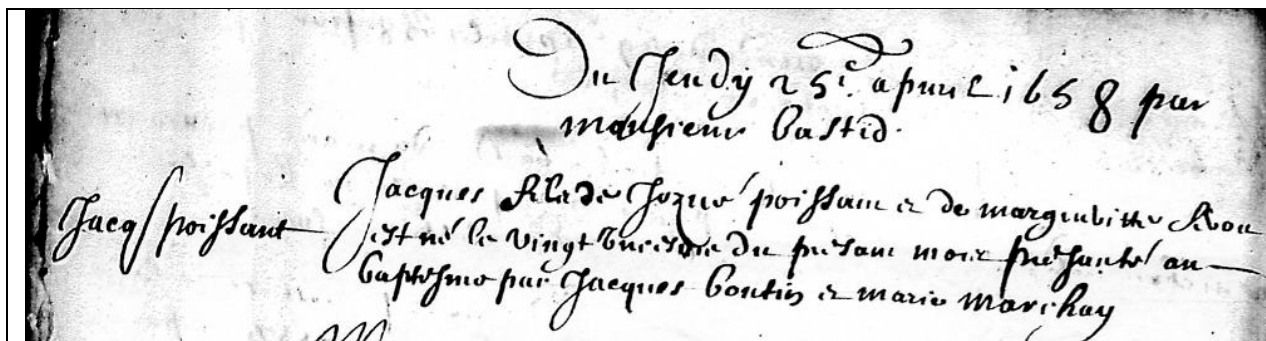 Du Jeudy 25e. apvril 1658 par
monsieur bastid.
Jacq poissant
Jacques fils de Jozué poissant et de margueritte
est né le vingt du presant mois presanté au
baptesme par Jacques boutin et marie marchay